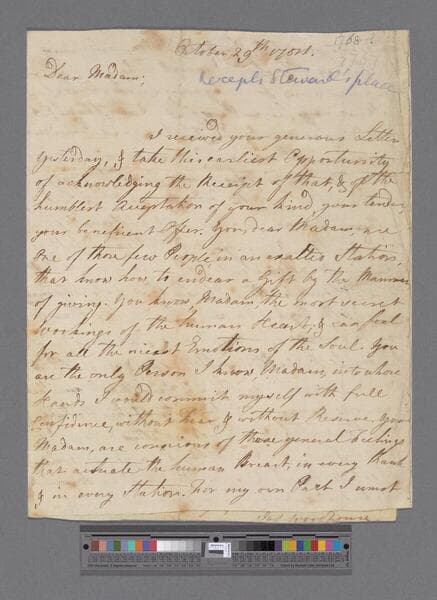 October 29th
Dear Madam;
accepts Steward's place
I received your generous Letter
yesterday, & take this earliest Opportunity
of acknowledging the Receipt of that, & of the
humblest Acceptation of your kind, your tender
your beneficent Offer. You, dear Madam, are
one of those few People in an exalted Station,
that know how to endear a Gift by the Manner
of giving. You know, Madam, the most secret
workings of the human Heart, & can feel
for all the nicest Emotions of the Soul. You
are the only Person I know, Madam, into whose
Hands I would commit myself with full
Confidence, without Fear & without Reserve. You,
Madam, are conscious of those general Feelings
that actuate the human Breast, in every Rank
& in every Station. For my own Part I must